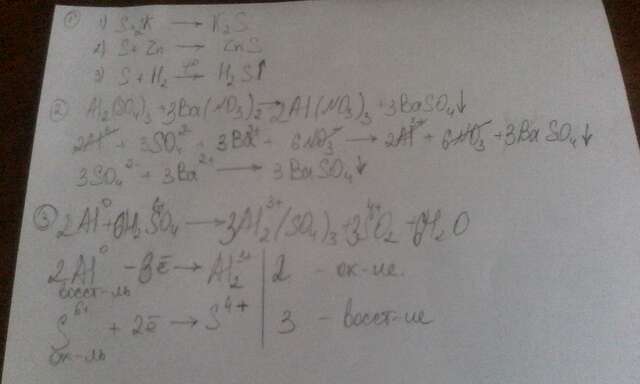 ① 1) S+2K → K₂S
2) S+Zn → ZnS
3) S+H₂ →(t°) H₂S↑
② Al₂(SO₄)₃+3Ba(NO₃)₂→2Al(NO₃)₃+3BaSO₄↓
2Al³⁺ + 3SO₄²⁻ + 3Ba²⁺ + 6NO₃⁻ → 2Al³⁺ + 6NO₃⁻ + 3BaSO₄↓
3SO₄²⁻ + 3Ba²⁺ → 3BaSO₄↓
③ 2Al⁰+6H₂S⁶⁺O₄ → 3Al₂³⁺(SO₄)₃+3S⁴⁺O₂+6H₂O
2Al⁰ - 3ē → Al₂³⁺ | 2 - ок-ие.
восст-ль
S⁶⁺ + 2ē → S⁴⁺ | 3 - восст-ие
ок-ль